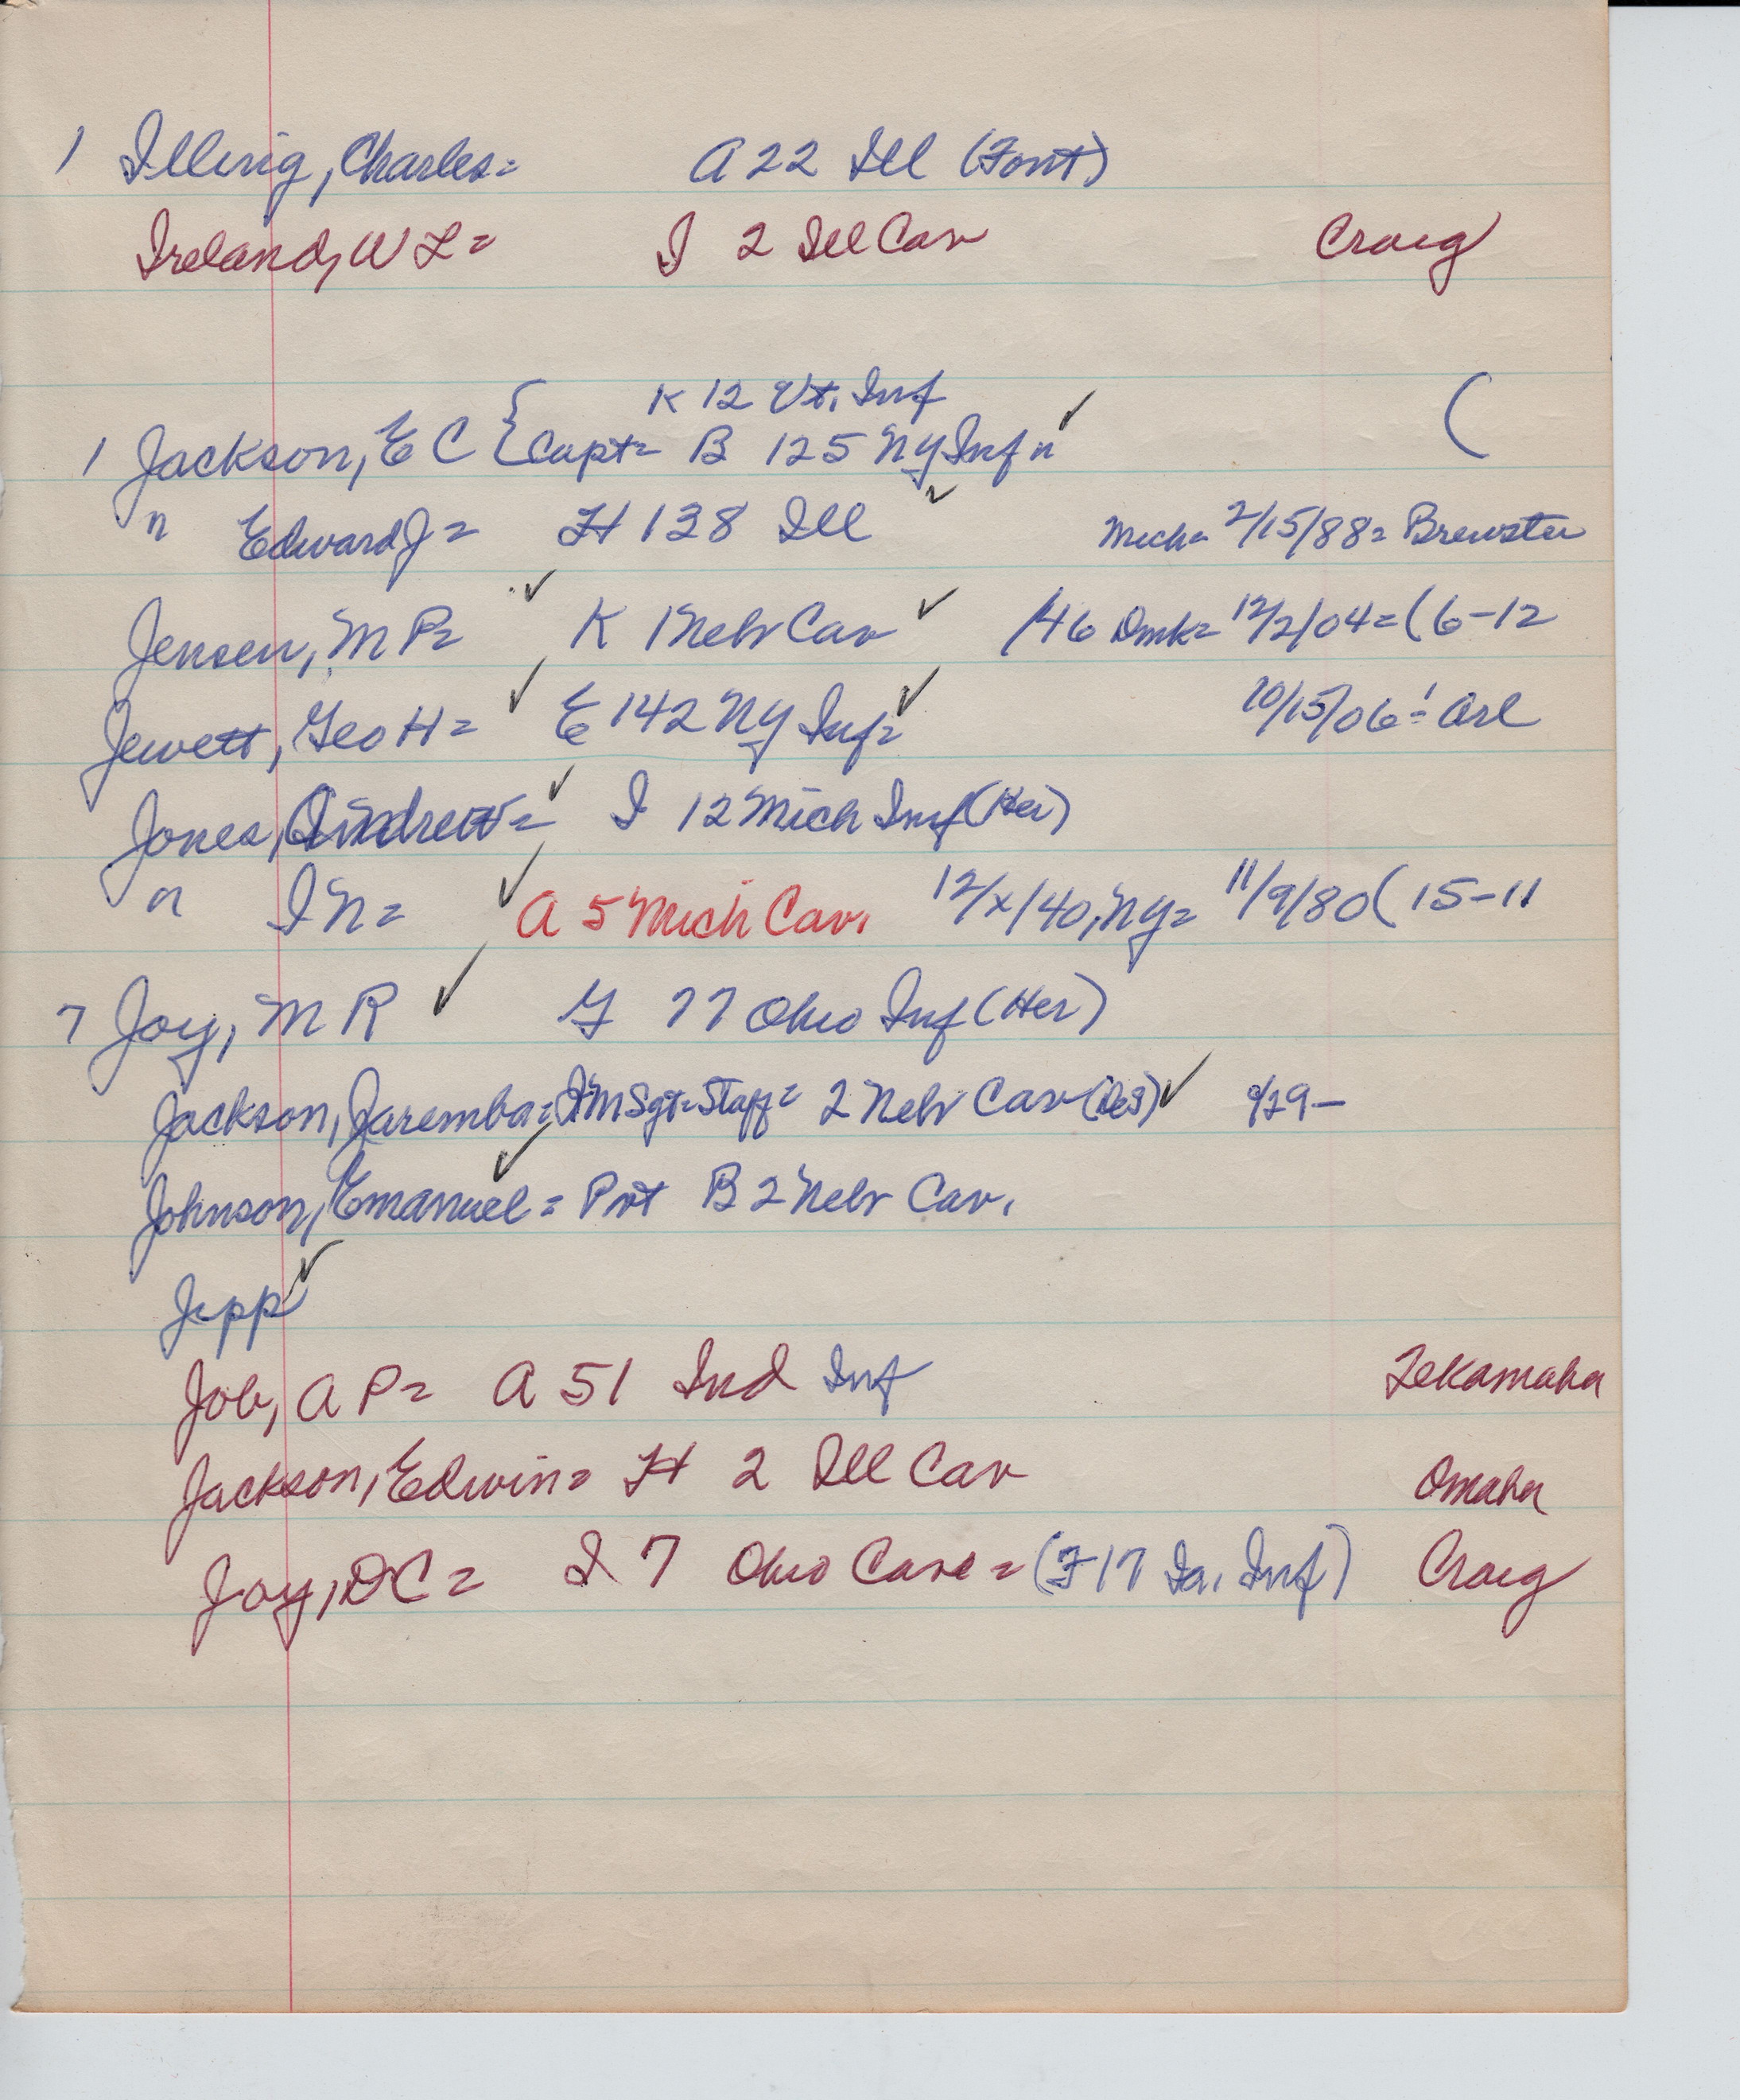 1 Illing, Charles= A 22 Ill (Font)
Ireland, W L= I 2 Ill Cav Craig
K 12 Vt. Inf ✓ (
1 Jackson, E C { Capt= B 125 NY Inf "
" Edward J= H 138 Ill ✓ Mich= 2/15/88= Brewster
Jensen, M P= ✓ K 1 Nebr Cav ✓ /46 Dmk= 12/2/04=(6-12
Jewett, Geo H= ✓ E 142 NY Inf= ✓ 10/15/06= Arl
Jones, Andrew= ✓ I 12 Mich Inf (Her)
" I N= ✓ A 5 Mich Cav. 12/x/40, NY= 11/9/80 (15-11
7 Joy, M R ✓ G 77 Ohio Inf (Her)
Jackson, Zaremba= Sgt= Staff= 2 Nebr Cav (Des) ✓ 9/29-
Johnson, Emanuel= ✓ Pvt B 2 Nebr Cav.
Jipp ✓
Job, A P= A 51 Ind Inf Tekamaha
Jackson, Edwin= H 2 Ill Cav Omaha
Joy, D C= I 7 Ohio Cav = (F 17 Ia. Inf) Craig